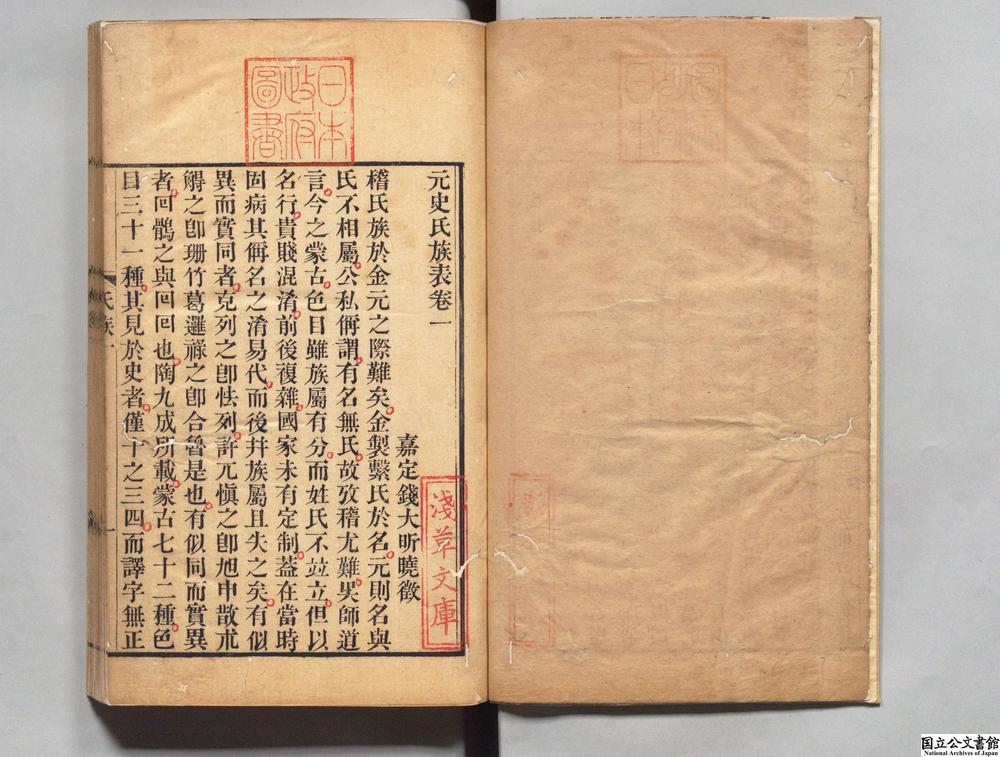 元史氏族表卷一
嘉定錢大昕曉徵
稽氏族於金元之際難矣金製繫氏於名元則名與
氏不相屬公私偁謂有名無氏故攷稽尤難吳師道
言今之蒙古色目雖族屬有分而姓氏不竝立但以
名行貴賤混淆前後複雜國家未有定制葢在當時
固病其偁名之淆易代而後幷族屬且失之矣有似
異而實同者克列之卽怯列許兀愼之卽旭申散朮
䚟之卽珊竹葛邏祿之卽合魯是也有似同而實異
者回鶻之與回回也陶九成所載蒙古七十二種色
目三十一種其見於史者僅十之三四而譯字無正
氏族一
一
日本政府圖書
淺草文庫
国立公文書館
National Archives of Japan